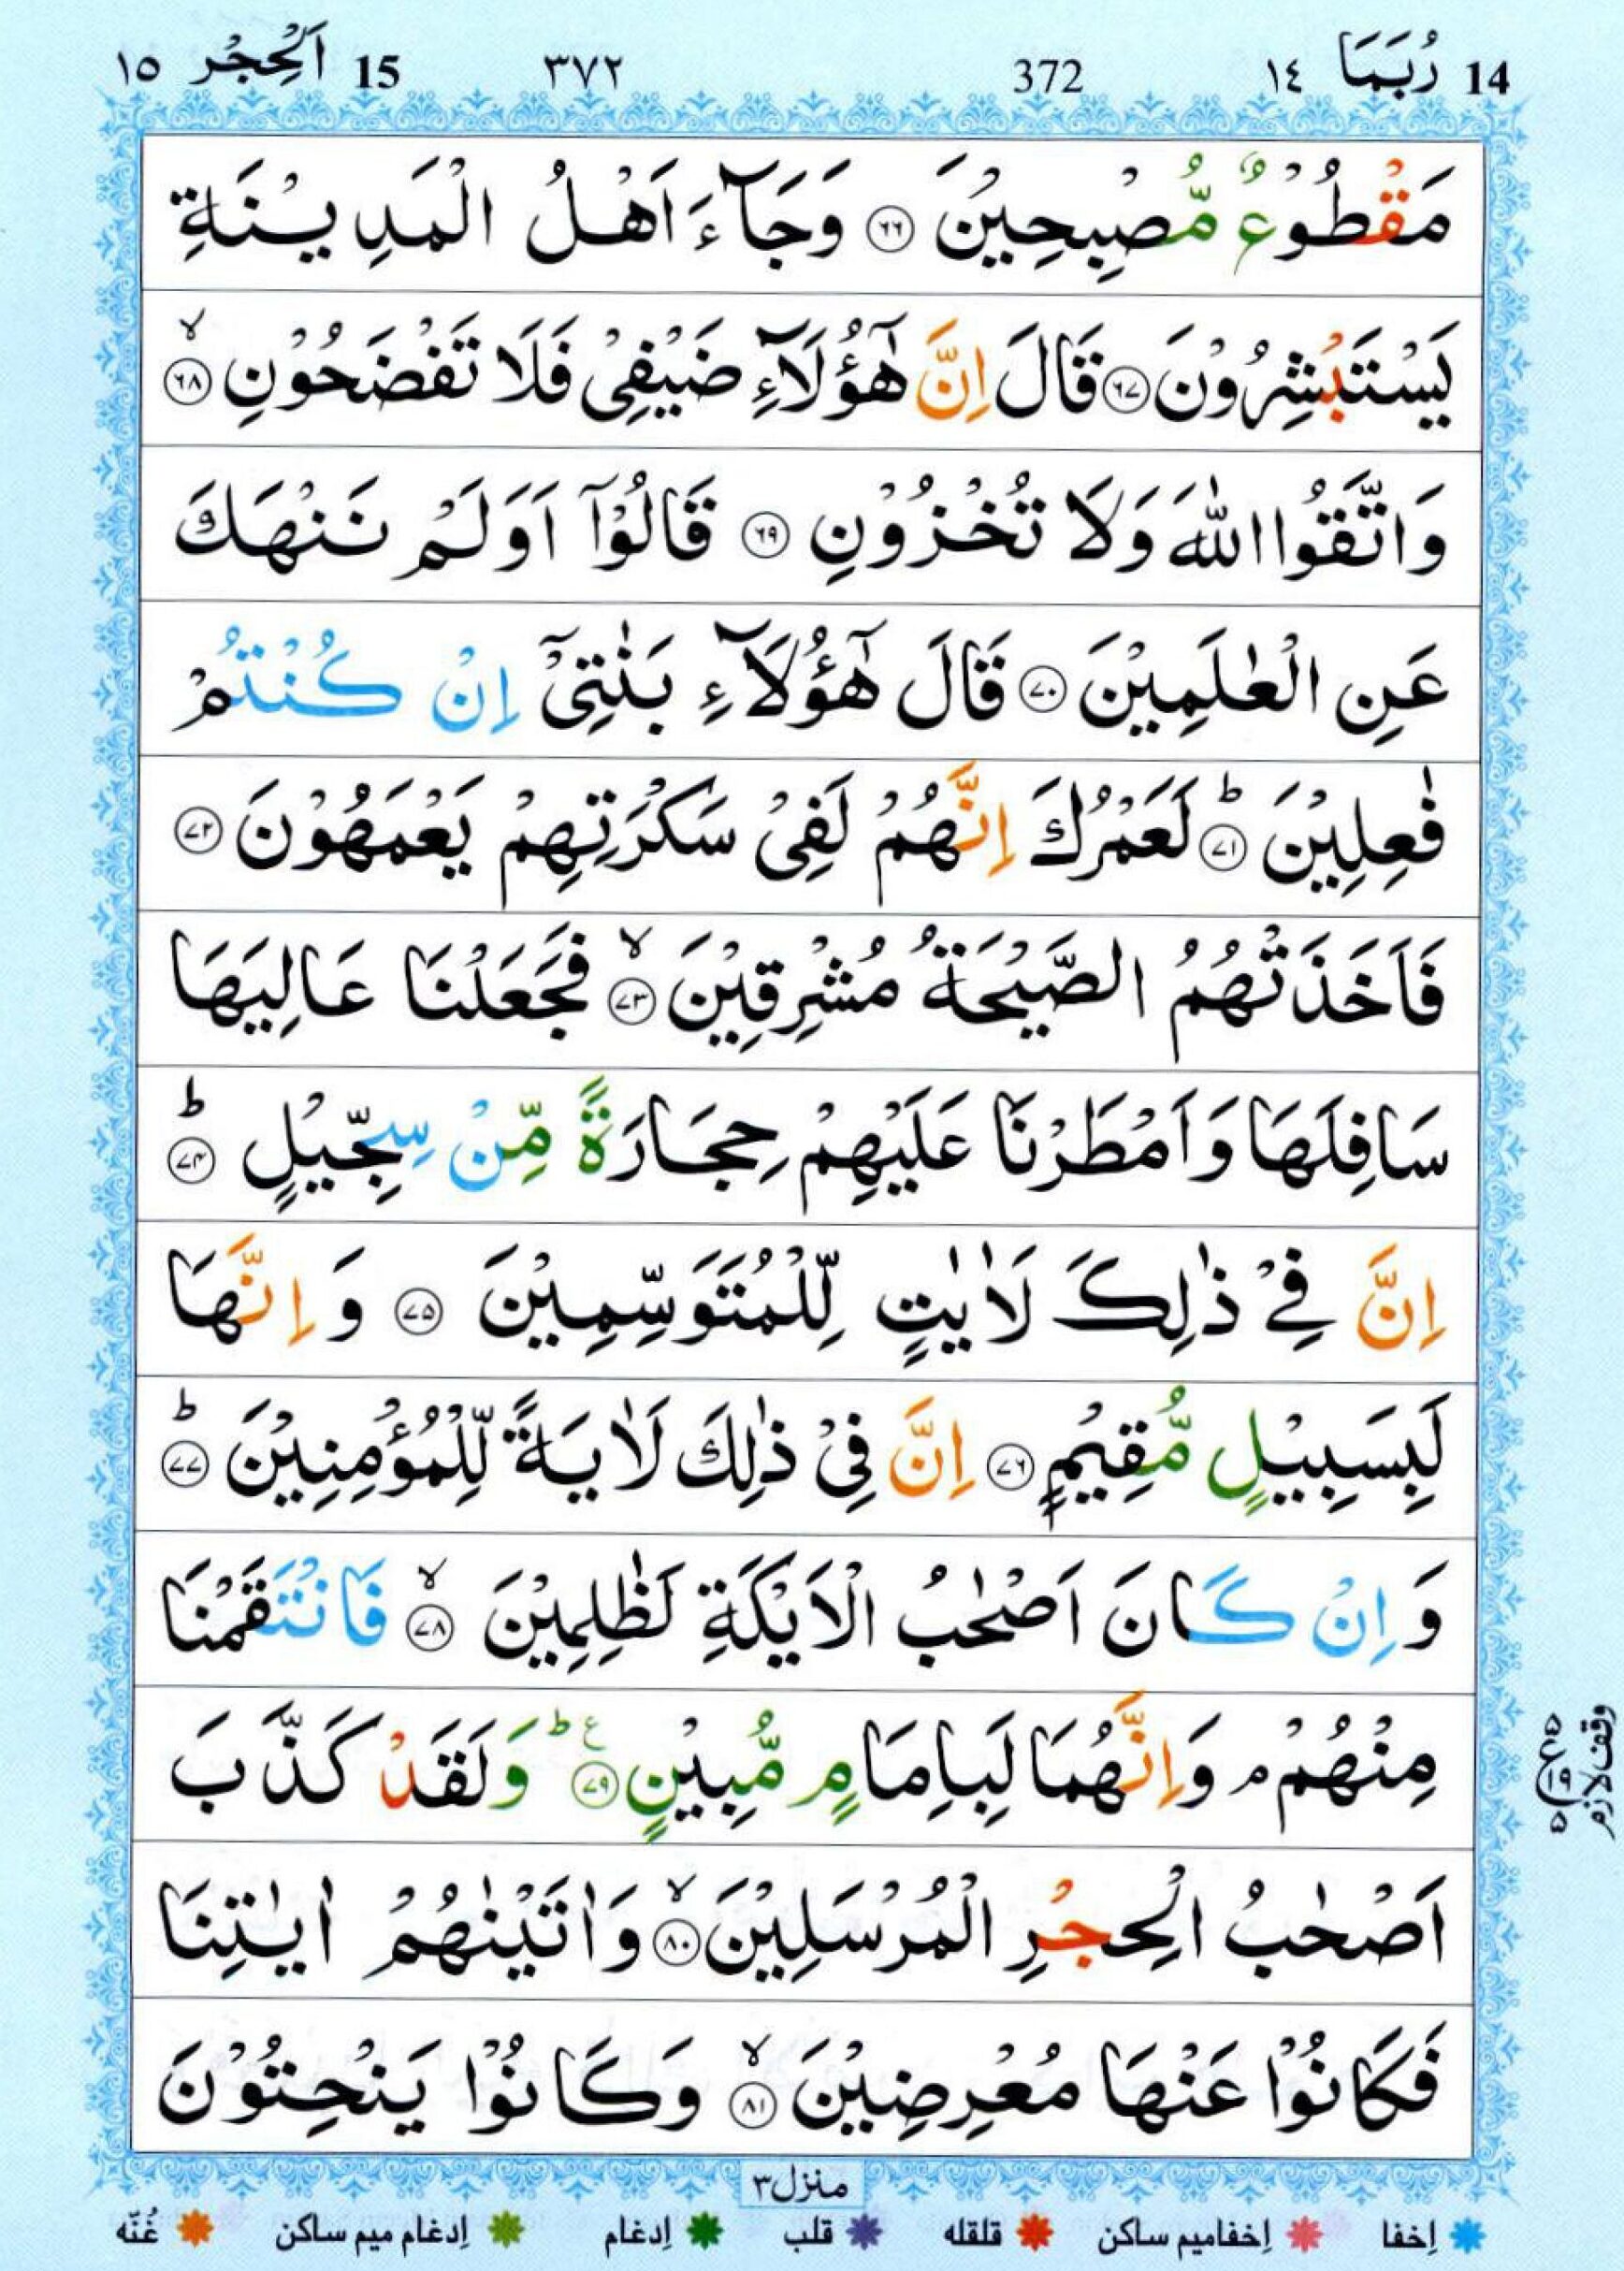 14 رُبَمَا ١٤ 372 ٣٧٢ 15 اَلْحِجْر ١٥
مَقْطُوْعٌ مُّصْبِحِيْنَ ﴿٦٦﴾ وَجَآءَ اَهْلُ الْمَدِيْنَةِ
يَسْتَبْشِرُوْنَ ﴿٦٧﴾ قَالَ اِنَّ هٰٓؤُلَآءِ ضَيْفِيْ فَلَا تَفْضَحُوْنِ ﴿٦٨﴾ۙ
وَاتَّقُوا اللّٰهَ وَلَا تُخْزُوْنِ ﴿٦٩﴾ قَالُوْٓا اَوَلَمْ نَنْهَكَ
عَنِ الْعٰلَمِيْنَ ﴿٧٠﴾ قَالَ هٰٓؤُلَآءِ بَنٰتِيْٓ اِنْ كُنْتُمْ
فٰعِلِيْنَ ﴿٧١﴾ؕ لَعَمْرُكَ اِنَّهُمْ لَفِيْ سَكْرَتِهِمْ يَعْمَهُوْنَ ﴿٧٢﴾
فَاَخَذَتْهُمُ الصَّيْحَةُ مُشْرِقِيْنَ ﴿٧٣﴾ۙ فَجَعَلْنَا عَالِيَهَا
سَافِلَهَا وَاَمْطَرْنَا عَلَيْهِمْ حِجَارَةً مِّنْ سِجِّيْلٍ ﴿٧٤﴾ؕ
اِنَّ فِيْ ذٰلِكَ لَاٰيٰتٍ لِّلْمُتَوَسِّمِيْنَ ﴿٧٥﴾ وَاِنَّهَا
لَبِسَبِيْلٍ مُّقِيْمٍ ﴿٧٦﴾ اِنَّ فِيْ ذٰلِكَ لَاٰيَةً لِّلْمُؤْمِنِيْنَ ﴿٧٧﴾ؕ
وَاِنْ كَانَ اَصْحٰبُ الْاَيْكَةِ لَظٰلِمِيْنَ ﴿٧٨﴾ۙ فَانْتَقَمْنَا
مِنْهُمْ ۘ وَاِنَّهُمَا لَبِاِمَامٍ مُّبِيْنٍ ﴿٧٩﴾ؕ ع وَلَقَدْ كَذَّبَ
وقف لازم
ع ٥ ١٩ ٥
اَصْحٰبُ الْحِجْرِ الْمُرْسَلِيْنَ ﴿٨٠﴾ۙ وَاٰتَيْنٰهُمْ اٰيٰتِنَا
فَكَانُوْا عَنْهَا مُعْرِضِيْنَ ﴿٨١﴾ۙ وَكَانُوْا يَنْحِتُوْنَ
منزل ٣
اِخفا اِخفامیم ساکن قلقله قلب اِدغام اِدغام میم ساکن غُنّه